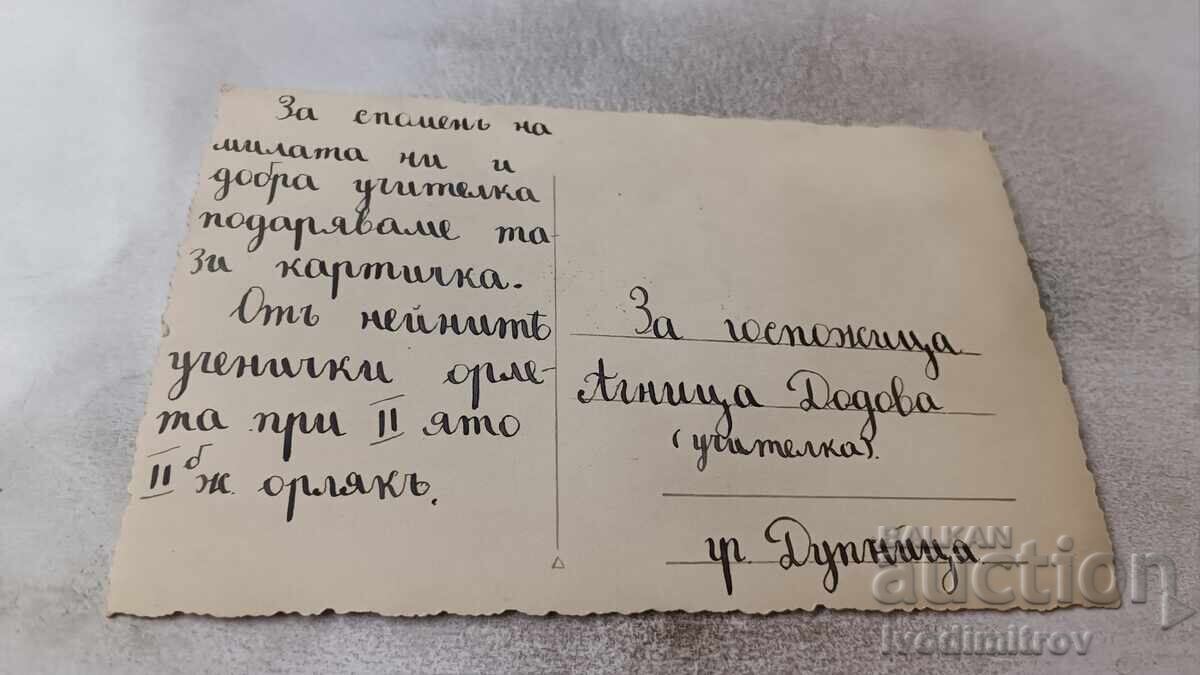 За споменъ на
милата ни и
добра учителка
подаряваме та
зи картичка.
Отъ нейнитѣ
ученички орле-
та при II ято
II б ж. орлякъ.
За госпожица
Агница Додова
(учителка).
гр. Дупница
BALKAN
auction
ivodimitrov